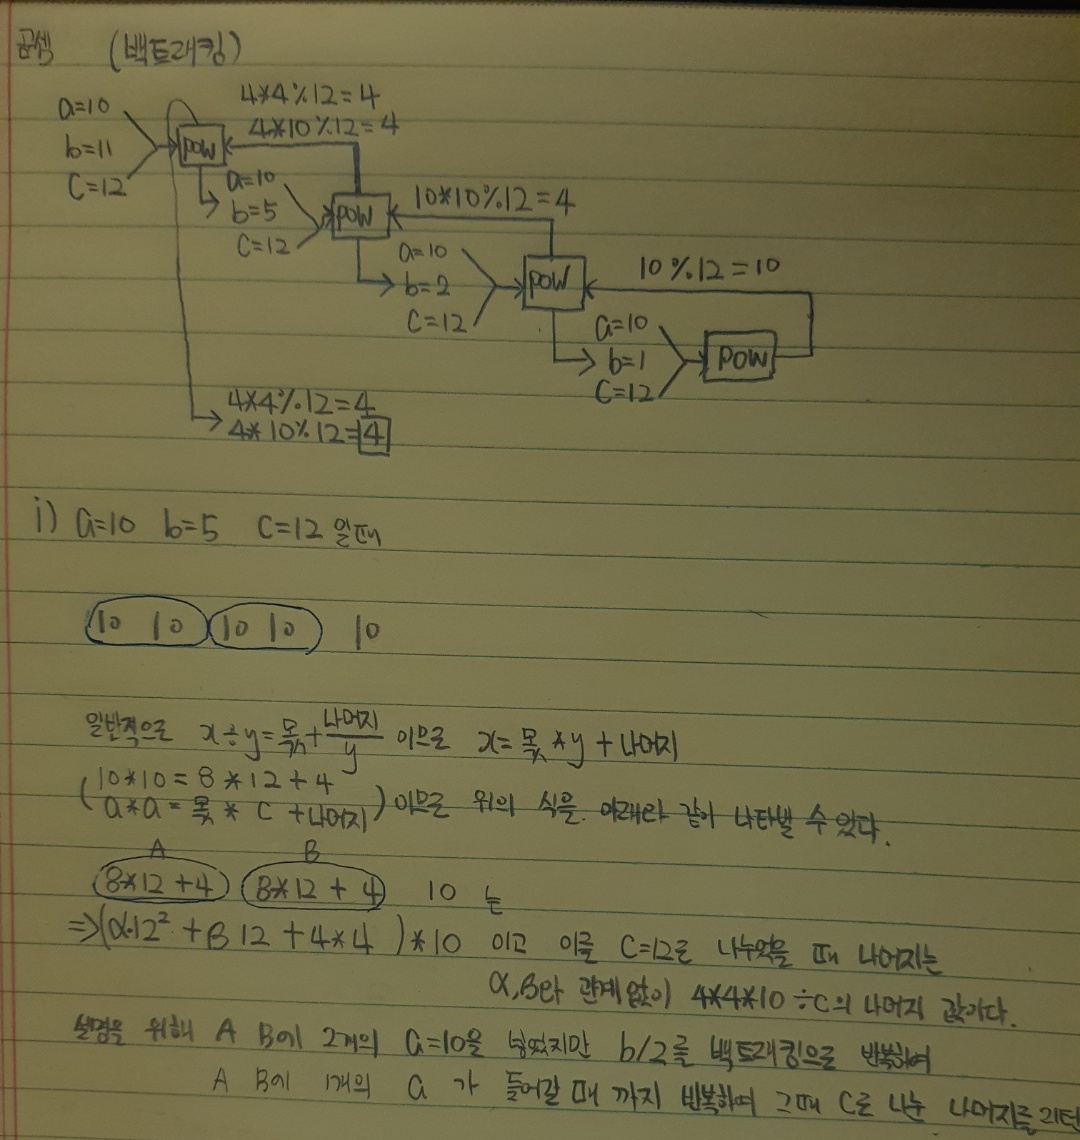 곱셈 (백트래킹)
a=10
b=11
C=12
pow
4*4%12=4
4*10%12=4
a=10
b=5
C=12
pow
10*10%12=4
a=10
b=2
C=12
pow
10%12=10
a=10
b=1
C=12
pow
4*4%12=4
4*10%12=4
i) a=10 b=5 C=12 일때
10 10 10 10 10
일반적으로 x÷y=몫+나머지/y 이므로 x=몫*y+나머지
(10*10=8*12+4
a*a=몫*C+나머지)이므로 위의 식을 아래와 같이 나타낼 수 있다.
A B
8*12+4 8*12+4 10 는
⇒(α·12² + β12 + 4*4)*10 이고 이를 C=12로 나누었을 때 나머지는
α,β와 관계없이 4*4*10÷C의 나머지 값이다.
설명을 위해 A B에 2개의 a=10을 넣었지만 b/2를 백트래킹으로 반복하여
A B에 1개의 a 가 들어갈 때 까지 반복하여 그때 C로 나눈 나머지를 리턴